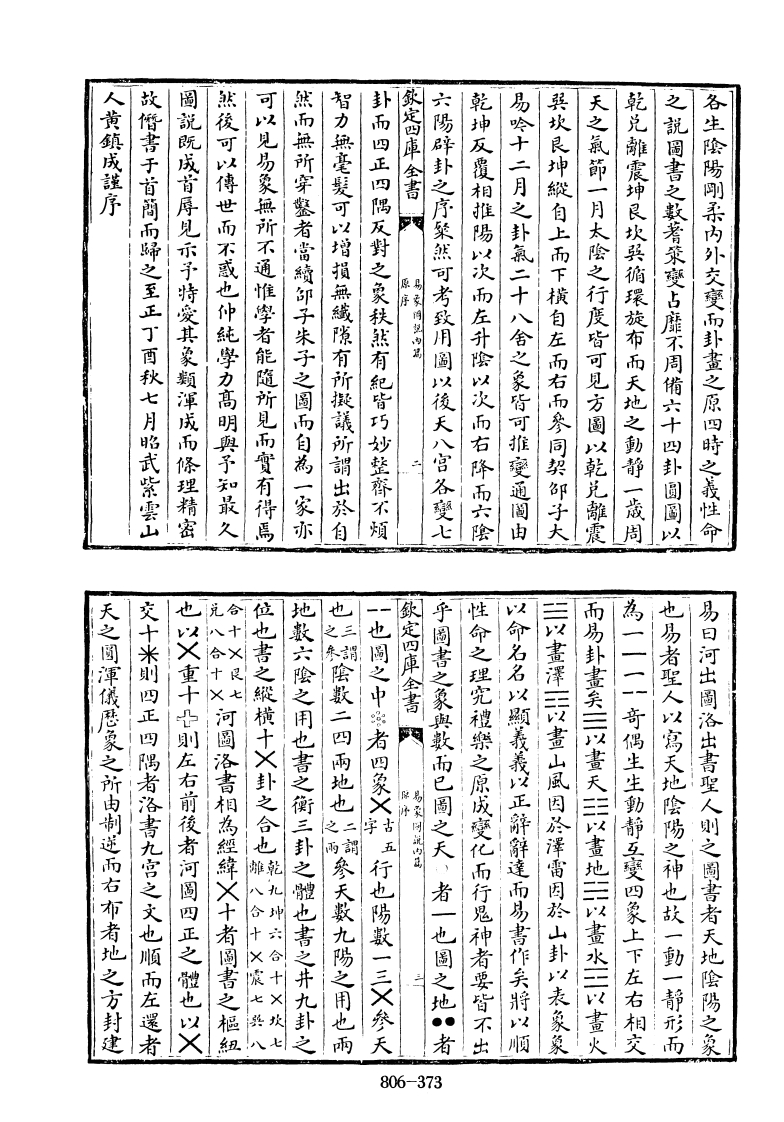 各生陰陽剛柔内外交變而卦畫之原四時之義性命
之説圖書之數蓍策變占靡不周備六十四卦圓圖以
乾兑離震坤艮坎巽循環旋布而天地之動靜一歲周
天之氣節一月太陰之行度皆可見方圖以乾兑離震
巽坎艮坤縱自上而下橫自左而右而參同契邵子大
易吟十二月之卦氣二十八舍之象皆可推變通圖由
乾坤反覆相推陽以次而左升陰以次而右降而六陰
六陽辟卦之序粲然可考致用圖以後天八宫各變七
欽定四庫全書
易象圖説内篇
原序
二
卦而四正四隅反對之象秩然有紀皆巧妙整齊不煩
智力無毫髮可以增損無纖隙有所擬議所謂出於自
然而無所穿鑿者當續邵子朱子之圖而自為一家亦
可以見易象無所不通惟學者能隨所見而實有得焉
然後可以傳世而不惑也仲純學力髙明與予知最久
圖説既成首辱見示予特愛其象類渾成而條理精密
故僭書于首簡而歸之至正丁酉秋七月昭武紫雲山
人黄鎮成謹序
易曰河出圖洛出書聖人則之圖書者天地陰陽之象
也易者聖人以寫天地陰陽之神也故一動一靜形而
為⚊⚋⚊⚋奇偶生生動靜互變四象上下左右相交
而易卦畫矣☰以畫天☷以畫地☵以畫水☲以畫火
☱以畫澤☶以畫山風因於澤雷因於山卦以表象象
以命名名以顯義義以正辭辭達而易書作矣將以順
性命之理究禮樂之原成變化而行鬼神者要皆不出
乎圖書之象與數而已圖之天○者一也圖之地●●者
欽定四庫全書
易象圖説内篇
原序
三
⚋也圖之中者四象㐅古五字行也陽數一三㐅參天
也三謂之參陰數二四兩地也二謂之兩參天數九陽之用也兩
地數六陰之用也書之衡三卦之體也書之井九卦之
位也書之縱橫十㐅卦之合也乾九坤六合十㐅坎七離八合十㐅震七巽八
合十㐅艮七兑八合十㐅河圖洛書相為經緯㐅十者圖書之樞紐
也以㐅重十則左右前後者河圖四正之體也以㐅
交十则四正四隅者洛書九宫之文也順而左還者
天之圓渾儀厯象之所由制逆而右布者地之方封建
806-373